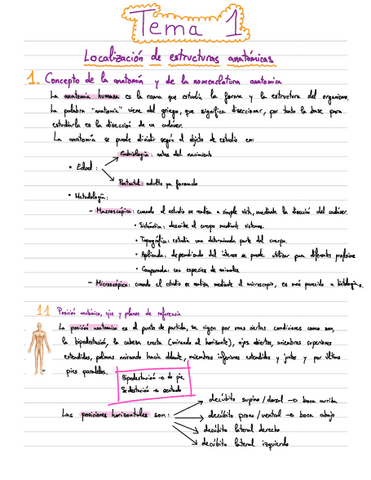 Tema 1
Localización de estructuras anatómicas
1. Concepto de la anatomía y de la nomenclatura anatomica
La anatomía humana es la rama que estudia la forma y la estructura del organismo.
La palabra "anatomía" viene del griego, que significa diseccionar, por tanto la base para
estudiarla es la disección de un cadáver.
La anatomía se puede dividir según el objeto de estudio en:
Embriología: antes del nacimiento
• Edad:
Postnatal: adulto ya formado
• Metodología:
- Macroscópica: cuando el estudio se realiza a simple vista, mediante la disección del cadáver.
• Sistemática: describe el cuerpo mediante sistemas.
• Topográfica: estudia una determinada parte del cuerpo.
• Aplicada: dependiendo del interés se puede utilizar para diferentes
• Comparada: con especies de animales
- Microscópica: cuando el estudio se realiza mediante el microscopio, es más parecido a histología.
1.1 Posición anatómica, ejes y planos de referencia
La posición anatómica es el punto de partida, se rigen por unas ciertas condiciones como son,
la bipedestación, la cabeza erecta (mirando al horizonte), ojos abiertos, miembros superiores
extendidos, palmas mirando hacia delante, miembros inferiores extendidos y juntos y por último
pies paralelos.
Bipedestación → de pie
Sedestación → sentado
Las posiciones horizontales son:
decúbito supino/dorsal → boca arriba
decúbito prono/ventral → boca abajo
decúbito lateral derecho
decúbito lateral izquierdo